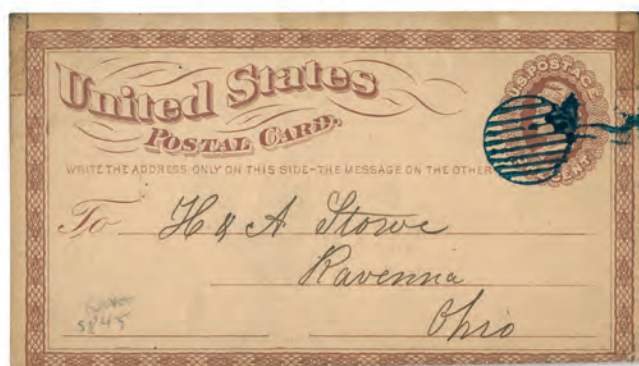 United States
POSTAL CARD.
U.S. POSTAGE
CENT
WRITE THE ADDRESS ONLY ON THIS SIDE-THE MESSAGE ON THE OTHER
To H & A Stowe
Ravenna
Ohio
5845